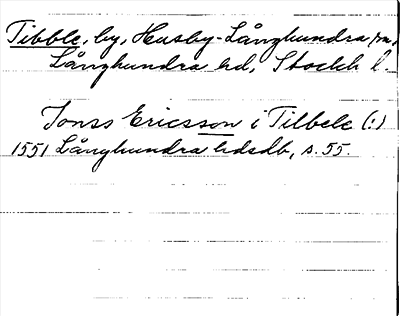 Tibble, by, Husby-Långhundra sn,
Långhundra hd, Stockh l.
Jonss Ericsson i Tilbele (:)
1551 Långhundra hdsdb, s. 55.